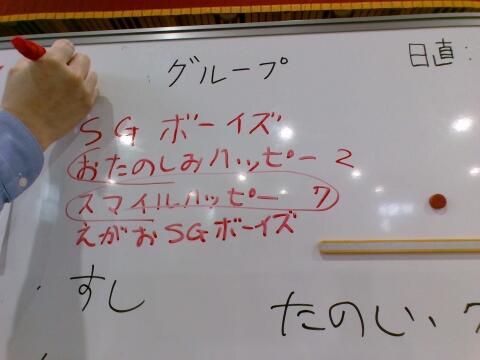 グループ
日直:
SG ボーイズ
おたのしみハッピー 2
スマイルハッピー 7
えがおSGボーイズ
・すし
たのしい、